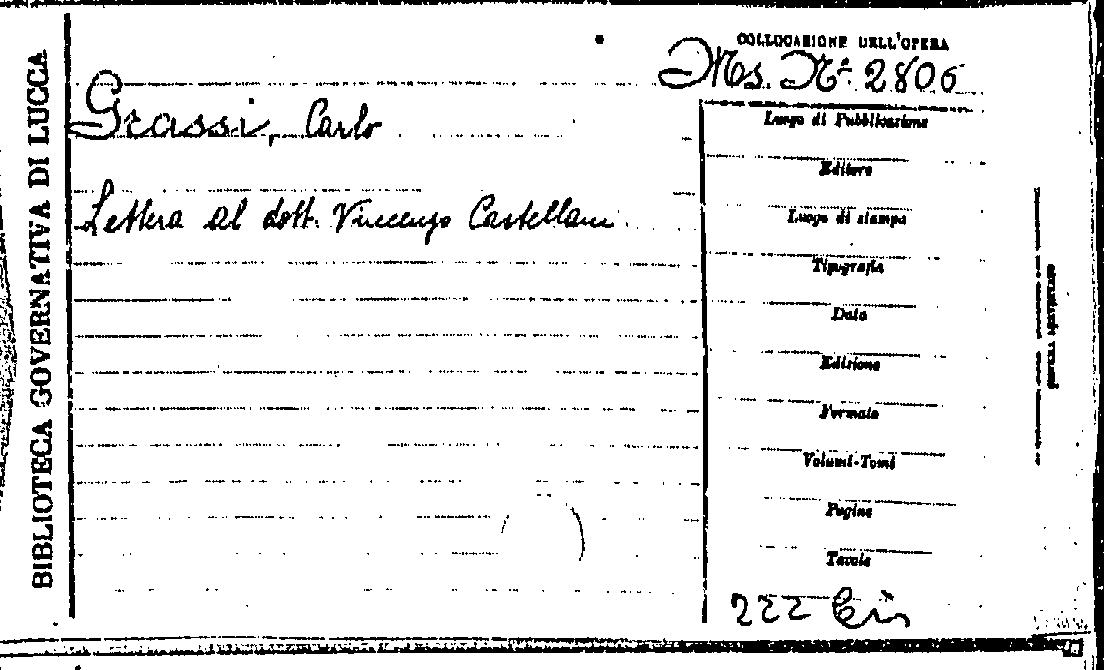 BIBLIOTECA GOVERNATIVA DI LUCCA
COLLOCAZIONE DELL'OPERA
Ms. N.º 2806
Grassi, Carlo
Lettera al dott. Vincenzo Castellani
Luogo di Pubblicazione
Editore
Luogo di stampa
Tipografia
Data
Edizione
Formato
Volumi-Tomi
Pagine
Tavole
222 bis